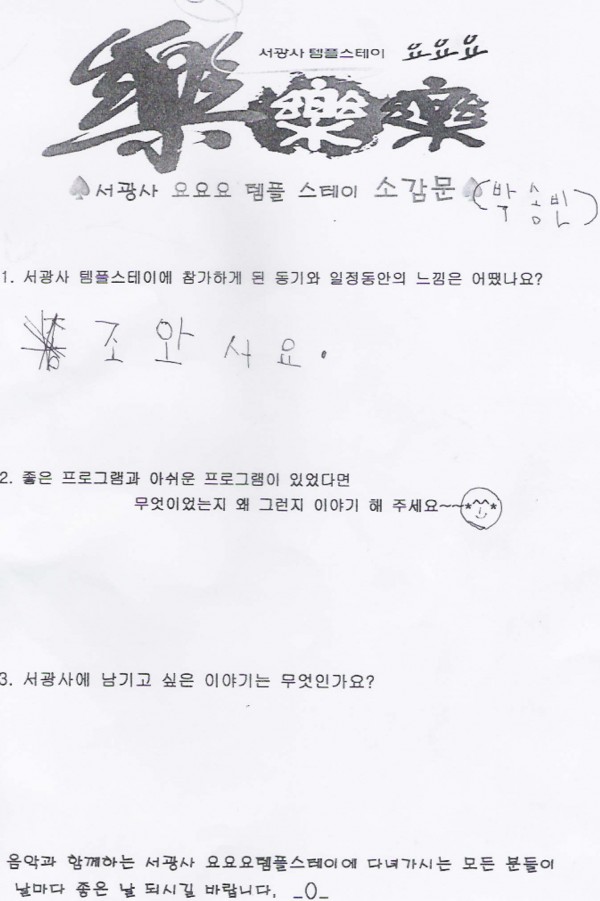 서광사 템플스테이 요요요
樂 樂 樂
서광사 요요요 템플 스테이 소감문 (박송빈)
1. 서광사 템플스테이에 참가하게 된 동기와 일정동안의 느낌은 어땠나요?
조와서요.
2. 좋은 프로그램과 아쉬운 프로그램이 있었다면
무엇이었는지 왜 그런지 이야기 해 주세요~~*^^*
3. 서광사에 남기고 싶은 이야기는 무엇인가요?
음악과 함께하는 서광사 요요요템플스테이에 다녀가시는 모든 분들이
날마다 좋은 날 되시길 바랍니다. _()_